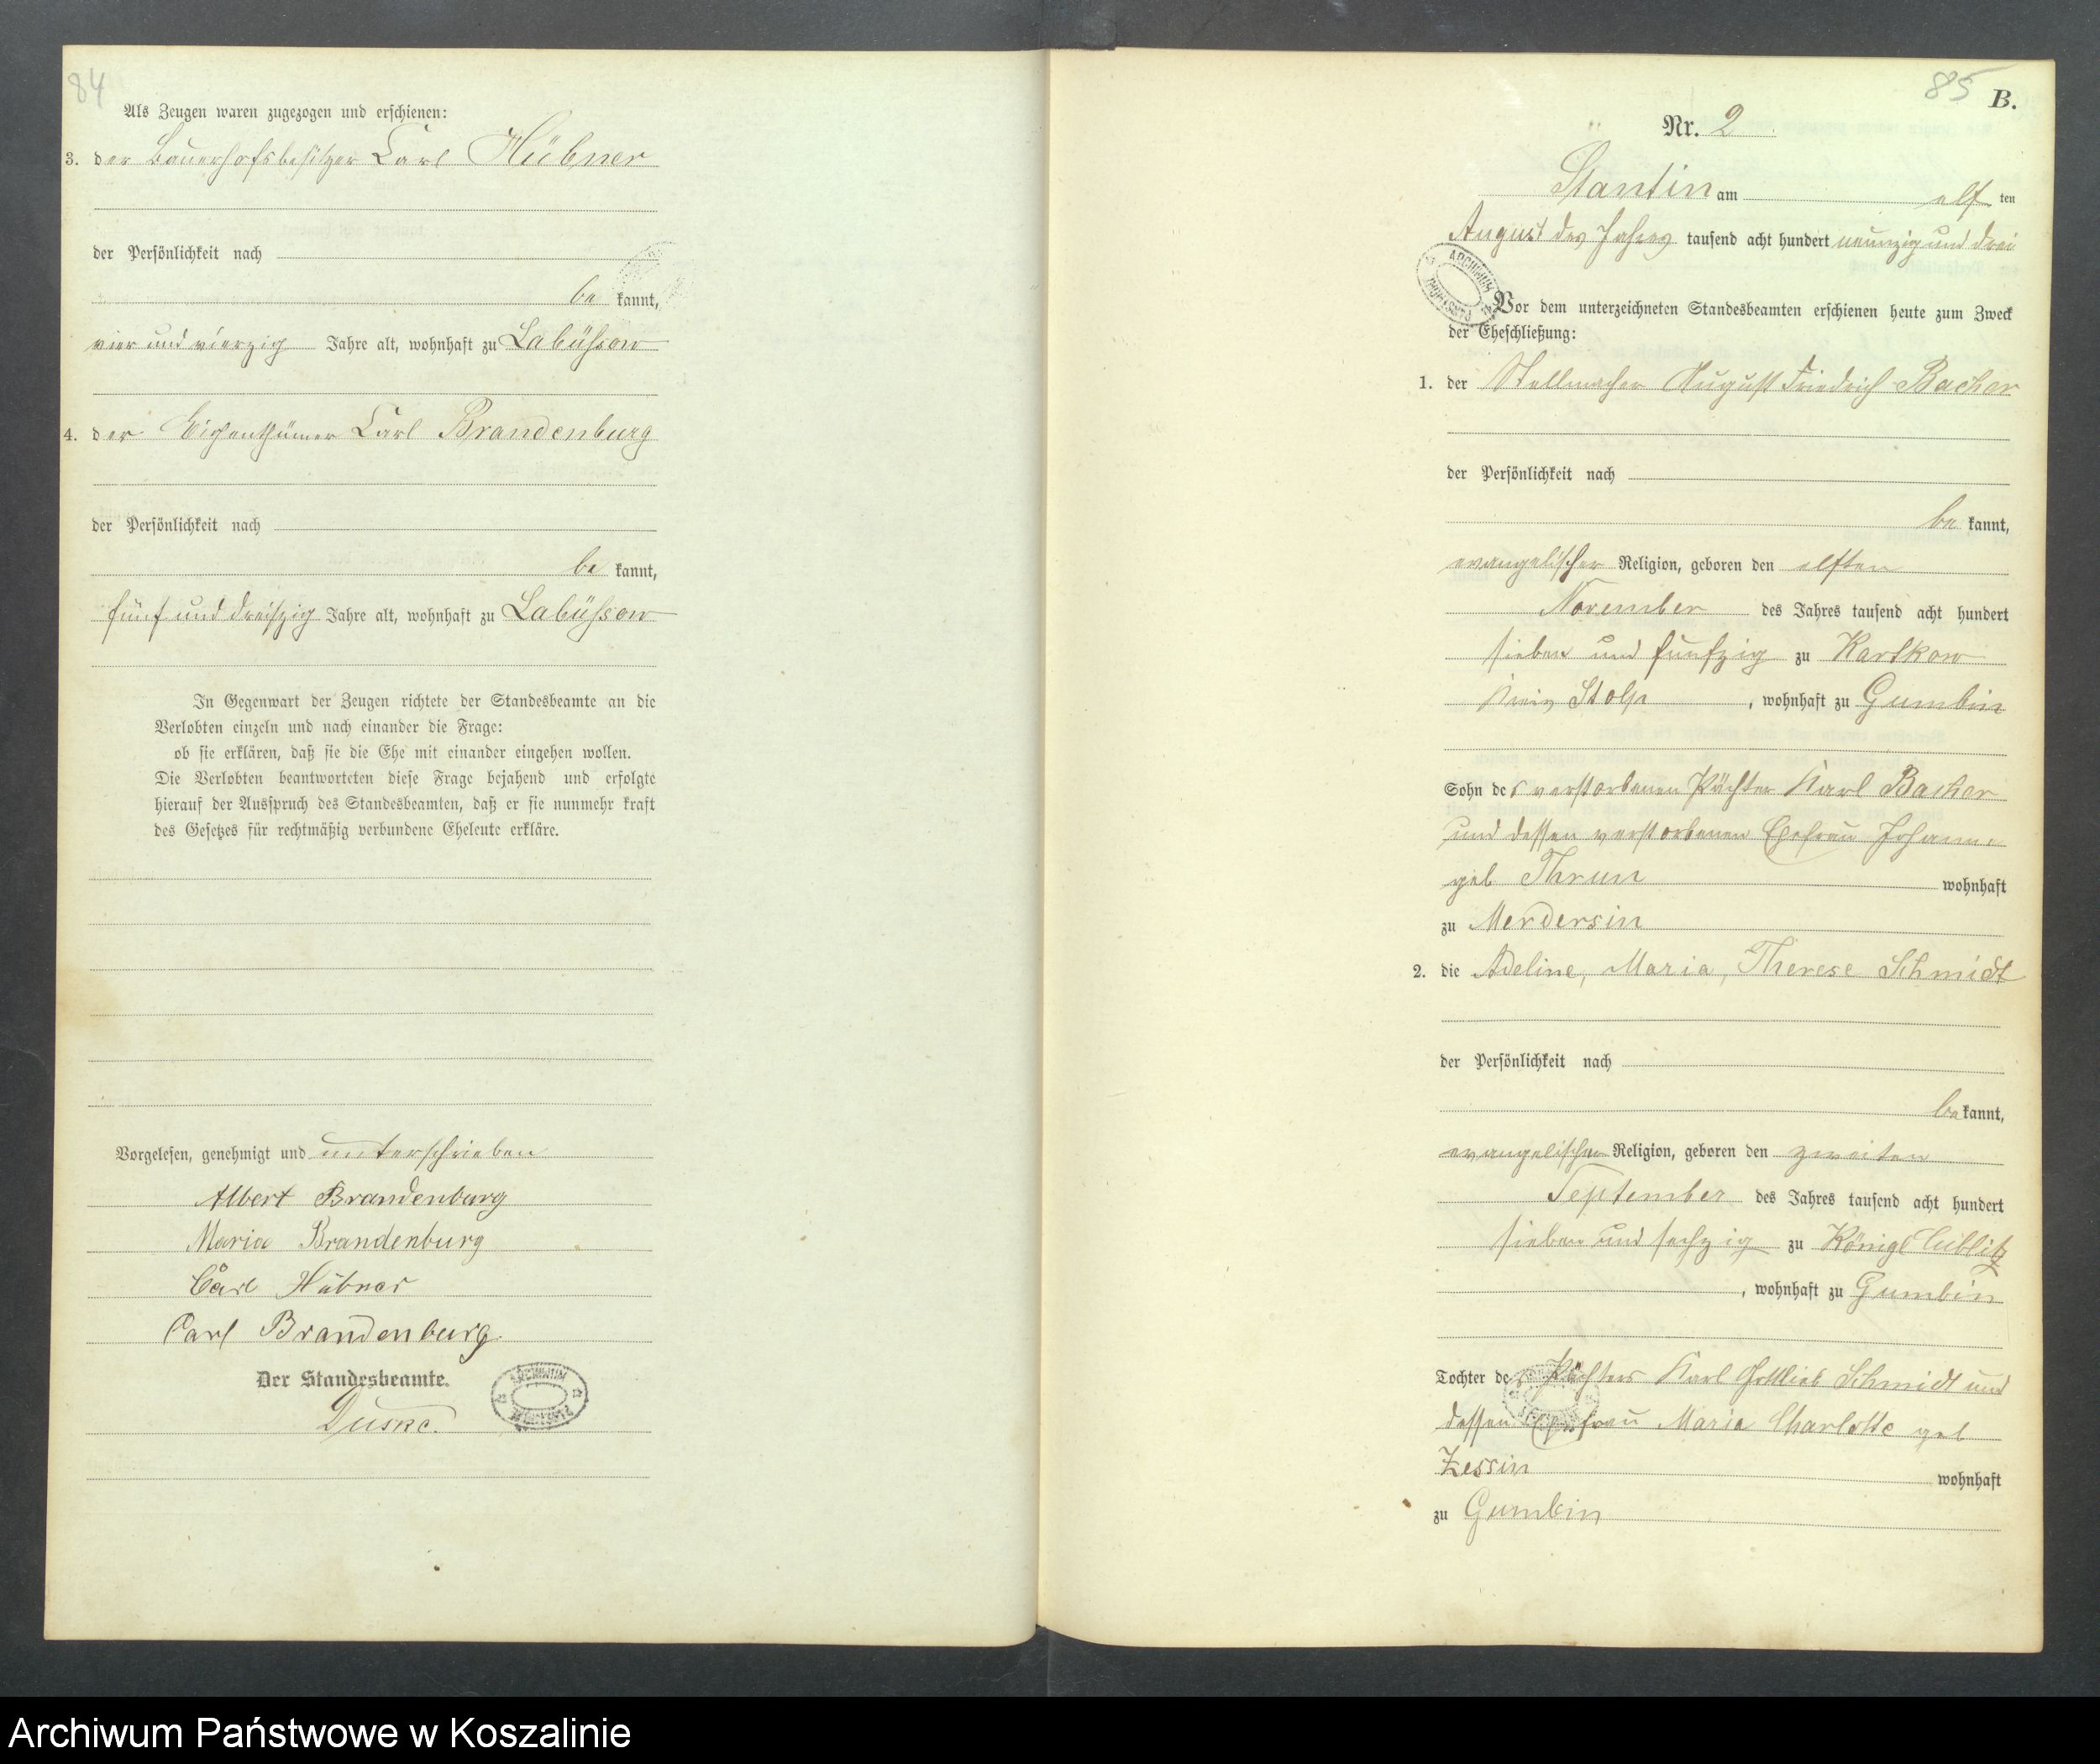 84
Als Zeugen waren zugezogen und erschienen:
3. der Bauerhofsbesitzer Carl Hübner
der Persönlichkeit nach
be kannt,
vier und vierzig Jahre alt, wohnhaft zu Labüssow
4. der Eigenthümer Carl Brandenburg
der Persönlichkeit nach
be kannt,
fünf und dreiszig Jahre alt, wohnhaft zu Labüssow
In Gegenwart der Zeugen richtete der Standesbeamte an die
Verlobten einzeln und nach einander die Frage:
ob sie erklären, daß sie die Ehe mit einander eingehen wollen.
Die Verlobten beantworteten diese Frage bejahend und erfolgte
hierauf der Ausspruch des Standesbeamten, daß er sie nunmehr kraft
des Gesetzes für rechtmäßig verbundene Eheleute erkläre.
Vorgelesen, genehmigt und unterschrieben
Albert Brandenburg
Maria Brandenburg
Carl Hübner
Carl Brandenburg.
Der Standesbeamte.
Duske.
ARCHIWUM
85 B.
Nr. 2
Stantin am elf ten
August des Jahres tausend acht hundert neunzig und drei
ARCHIWUM
Vor dem unterzeichneten Standesbeamten erschienen heute zum Zweck
der Eheschließung:
1. der Stellmacher August Friedrich Bacher
der Persönlichkeit nach
be kannt,
evangelischer Religion, geboren den elften
November des Jahres tausend acht hundert
sieben und funfzig zu Kartkow
Kreis Stolp, wohnhaft zu Gumbin
Sohn des verstorbenen Pächter Karl Bacher
und dessen verstorbenen Ehefrau Johann.
geb Thrun wohnhaft
zu Merdersin
2. die Adeline, Maria, Therese Schmidt
der Persönlichkeit nach
be kannt,
evangelischer Religion, geboren den zweiten
September des Jahres tausend acht hundert
sieben und sechzig zu Königl Lublitz
, wohnhaft zu Gumbin
Tochter des Pächters Karl Gottlieb Schmidt und
dessen Ehefrau Maria Charlotte geb
Zessin wohnhaft
zu Gumbin
Archiwum Państwowe w Koszalinie